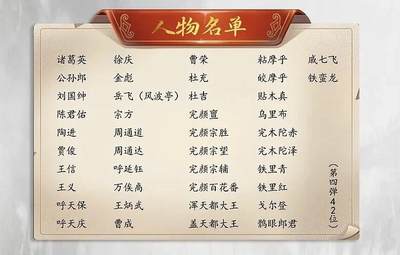 人物名单
诸葛英 徐庆 曹荣 粘摩乎 戚七飞
公孙郎 金彪 杜充 皎摩乎 铁蛮龙
刘国绅 岳飞（风波亭） 杜吉 贴木真
陈君佑 宗方 完颜亶 乌里布
陶进 周通道 完颜宗胜 完木陀赤
贾俊 周通达 完颜宗望 完木陀泽
王信 呼延钰 完颜宗辅 铁里青
王义 万俟卨 完颜百花番 铁里红
呼天保 王炳武 浑天都大王 戈尔登
呼天庆 曹成 盖天都大王 鹘眼郎君
（第四弹42位）